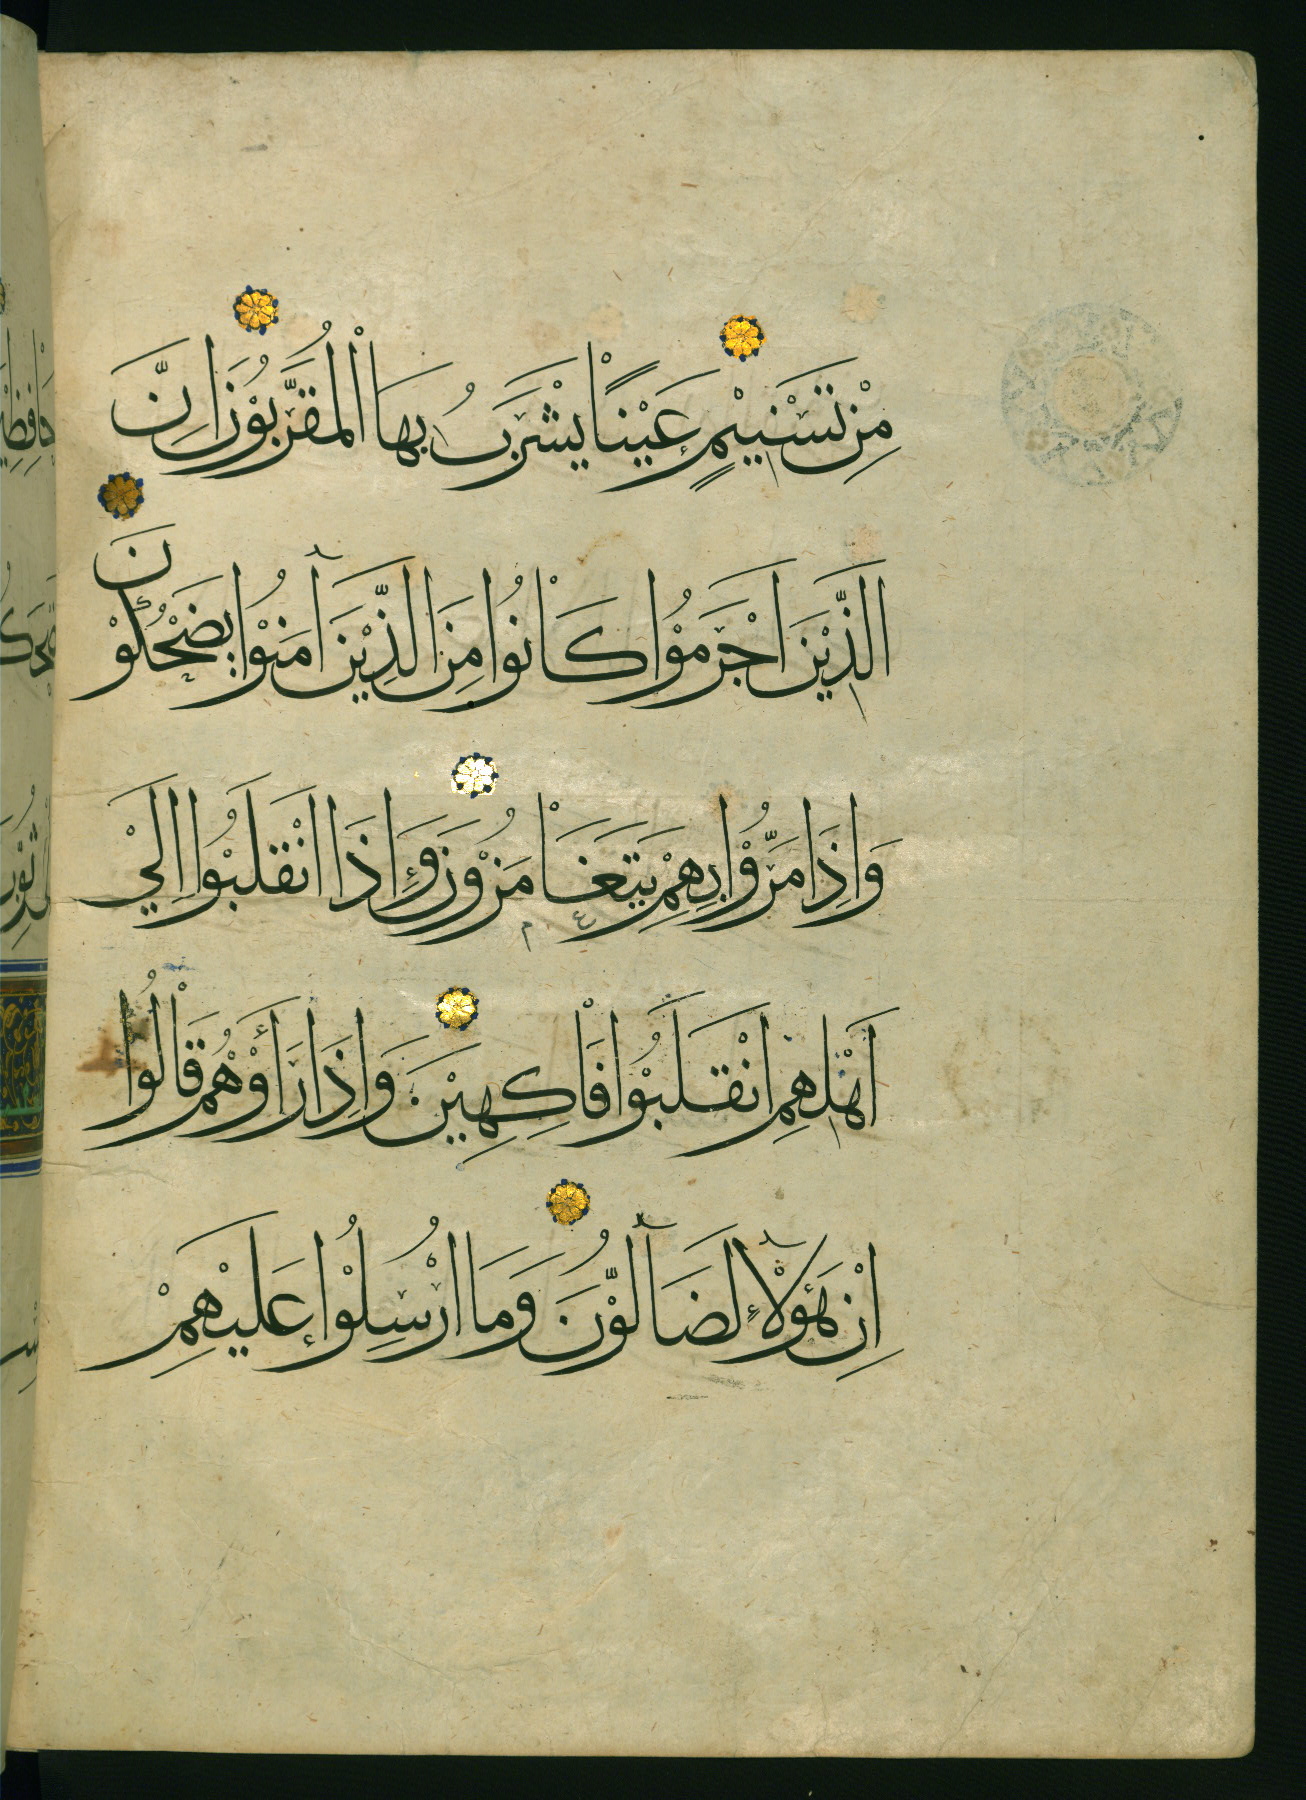 مِنْ تَسْنِيْمٍ عَيْنًا يَشْرَبُ بِهَا الْمُقَرَّبُوْنَ اِنَّ
الَّذِيْنَ اَجْرَمُوْا كَانُوا مِنَ الَّذِيْنَ آمَنُوْا يَضْحَكُوْنَ
وَاِذَا مَرُّوْا بِهِمْ يَتَغَامَزُوْنَ وَإِذَا انْقَلَبُوْا اِلَيْ
اَهْلِهِمِ انْقَلَبُوْا فَاكِهِيْنَ وَاِذَا رَأَوْهُمْ قَالُوا
اِنَّ هَؤُلَاءِ لَضَآلُّوْنَ وَمَا اُرْسِلُوْا عَلَيْهِمْ